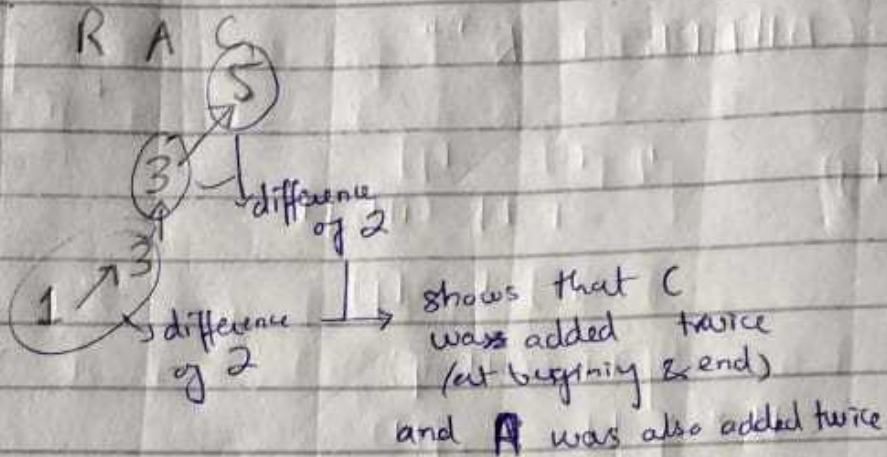 R A C
5
3
difference
of 2
3
1
difference
of 2
shows that C
was added twice
(at begginiy & end)
and A was also added twice